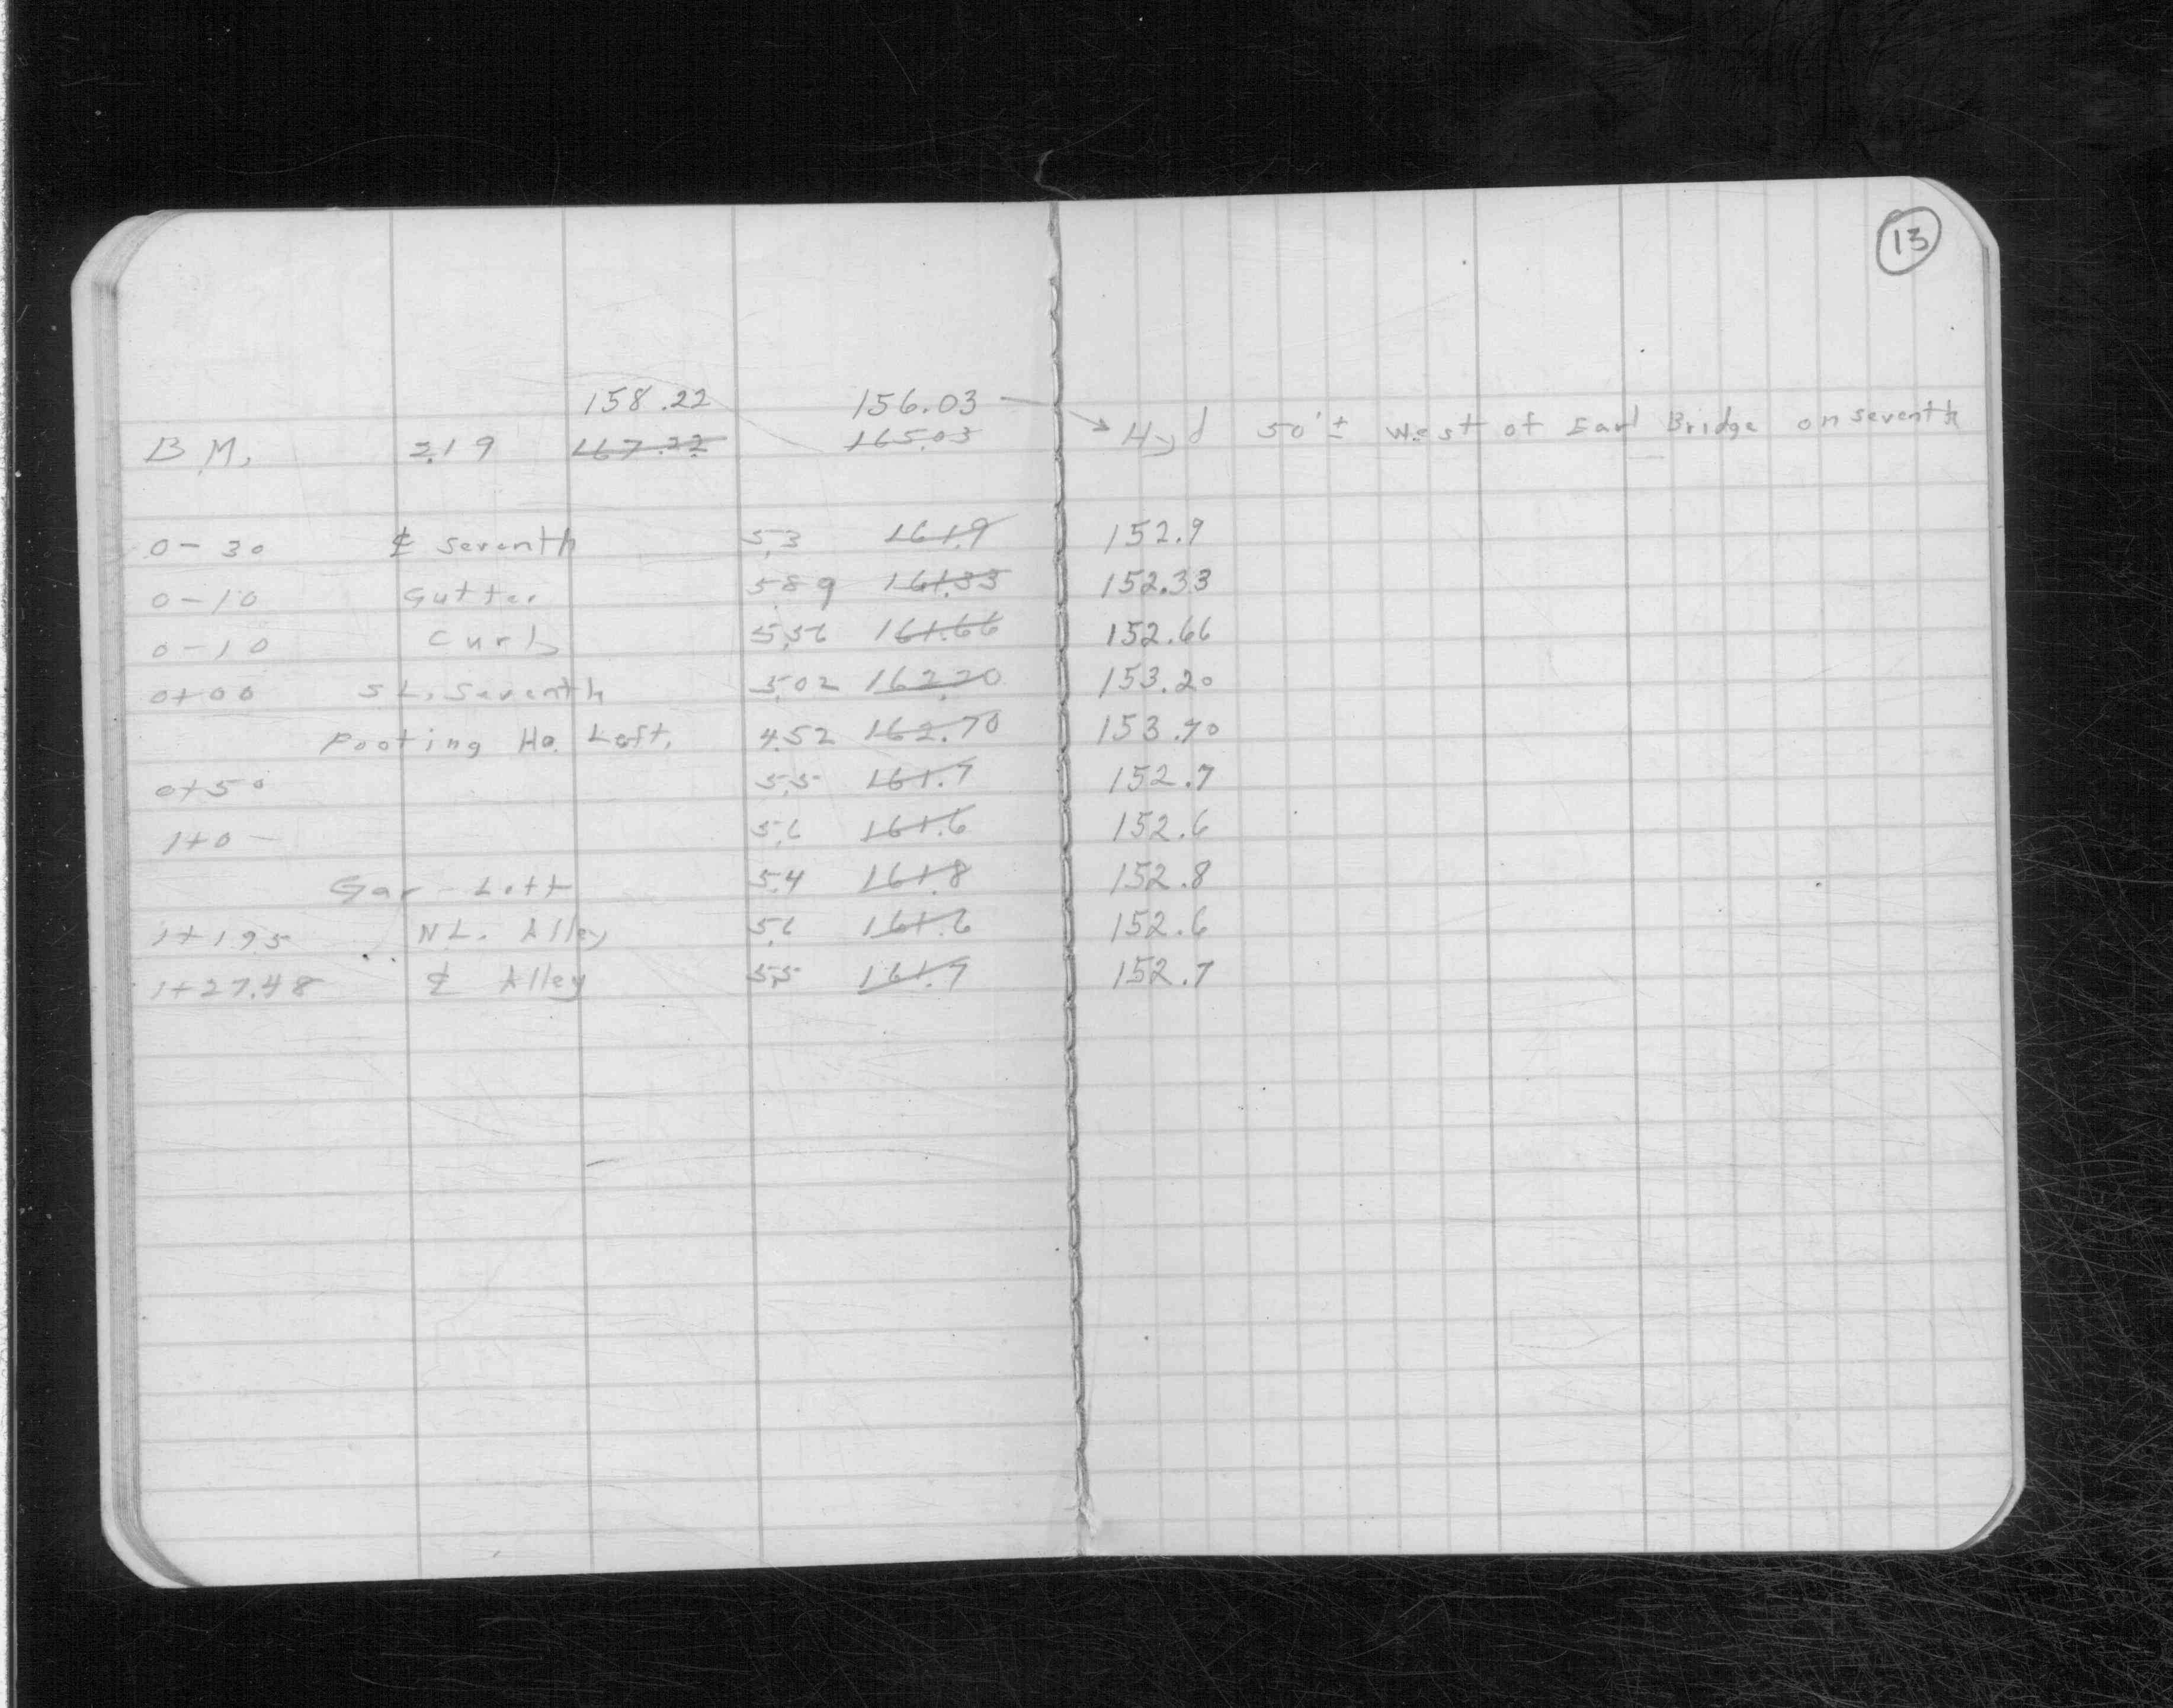 13
158.22 156.03
B.M. 2.19 167.22 165.03 → Hyd 50'± West of Earl Bridge on Seventh
0-30 ℄ Seventh 5.3 161.9 152.9
0-10 Gutter 5.89 161.33 152.33
0-10 Curb 5.56 161.66 152.66
0+00 S.L. Seventh 5.02 162.20 153.20
Footing Ho. Left. 4.52 162.70 153.70
0+50 5.5 161.7 152.7
1+0- 5.6 161.6 152.6
Gar - Left 5.4 161.8 152.8
1+19.5 N.L. Alley 5.6 161.6 152.6
1+27.48 ℄ Alley 5.5 161.7 152.7